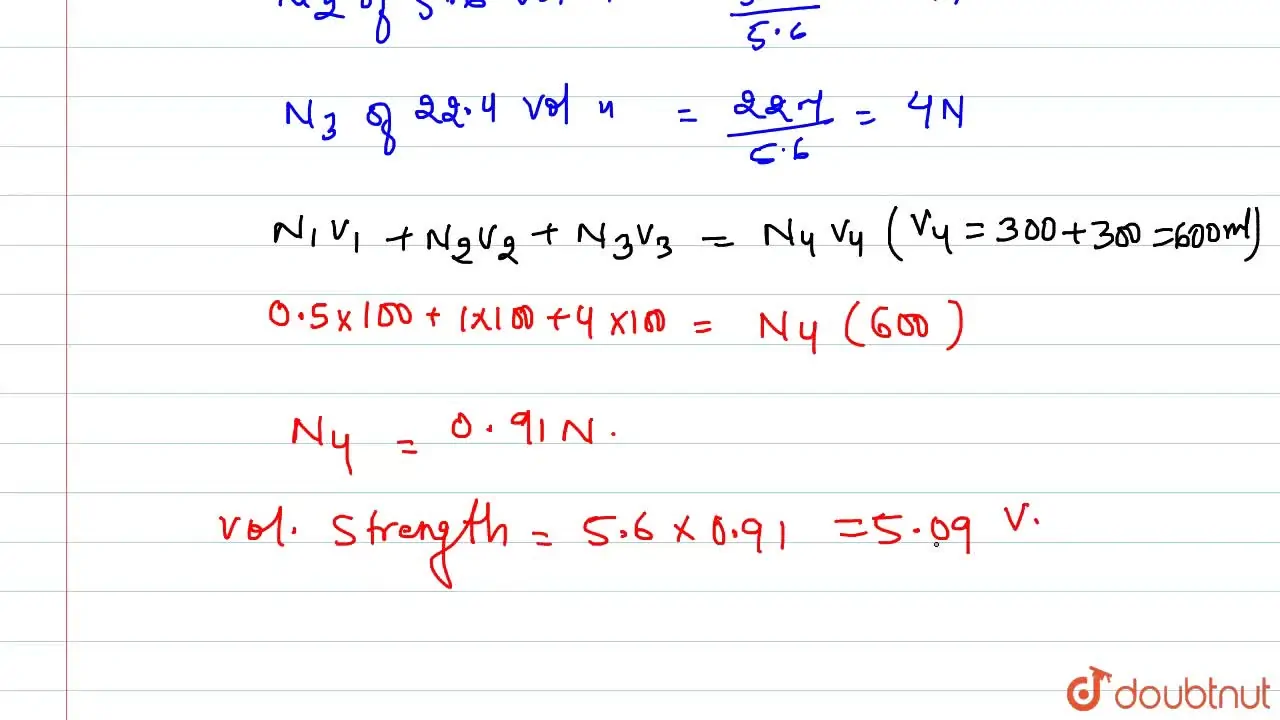 5.6
N3 of 22.4 vol " = 22.4/5.6 = 4N
N1V1 + N2V2 + N3V3 = N4V4 (V4 = 300 + 300 = 600ml)
0.5×100 + 1×100 + 4×100 = N4 (600)
N4 = 0.91N.
Vol. Strength = 5.6 × 0.91 = 5.09 V.
doubtnut